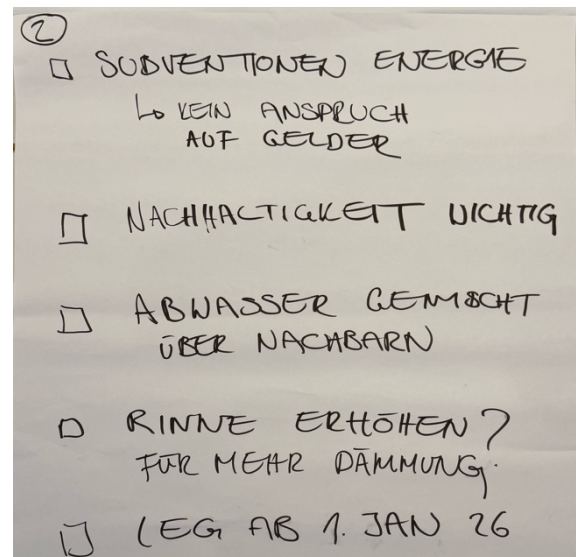 2
□ SUBVENTIONEN ENERGIE
↳ KEIN ANSPRUCH
AUF GELDER
□ NACHHALTIGKEIT WICHTIG
□ ABWASSER GEMISCHT
ÜBER NACHBARN
□ RINNE ERHÖHEN?
FÜR MEHR DÄMMUNG.
□ LEG AB 1. JAN 26